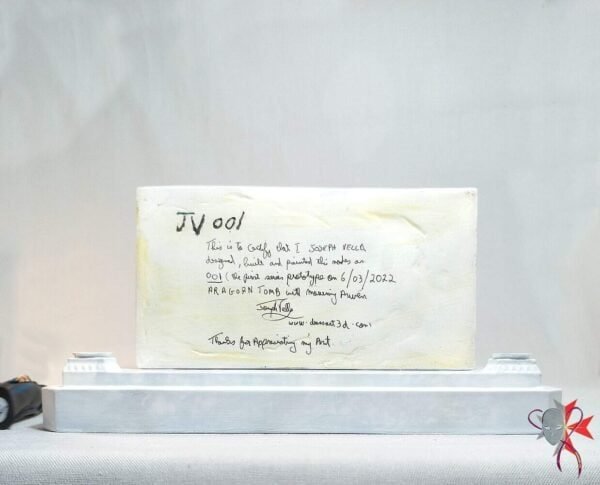 JV 001
This is to Certify that I JOSEPH VELLA
designed, built and painted this model as
001 (the first series prototype on 6/03/2022
ARAGORN TOMB with mourning Arwen
Joseph Vella
Thanks for Appreciating my Art.